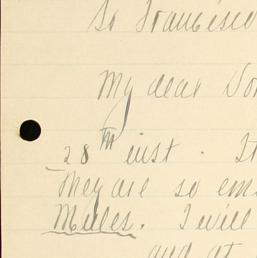 So Francisco
My dear Don
28th inst. It
They are so em
Mules. I will
and at